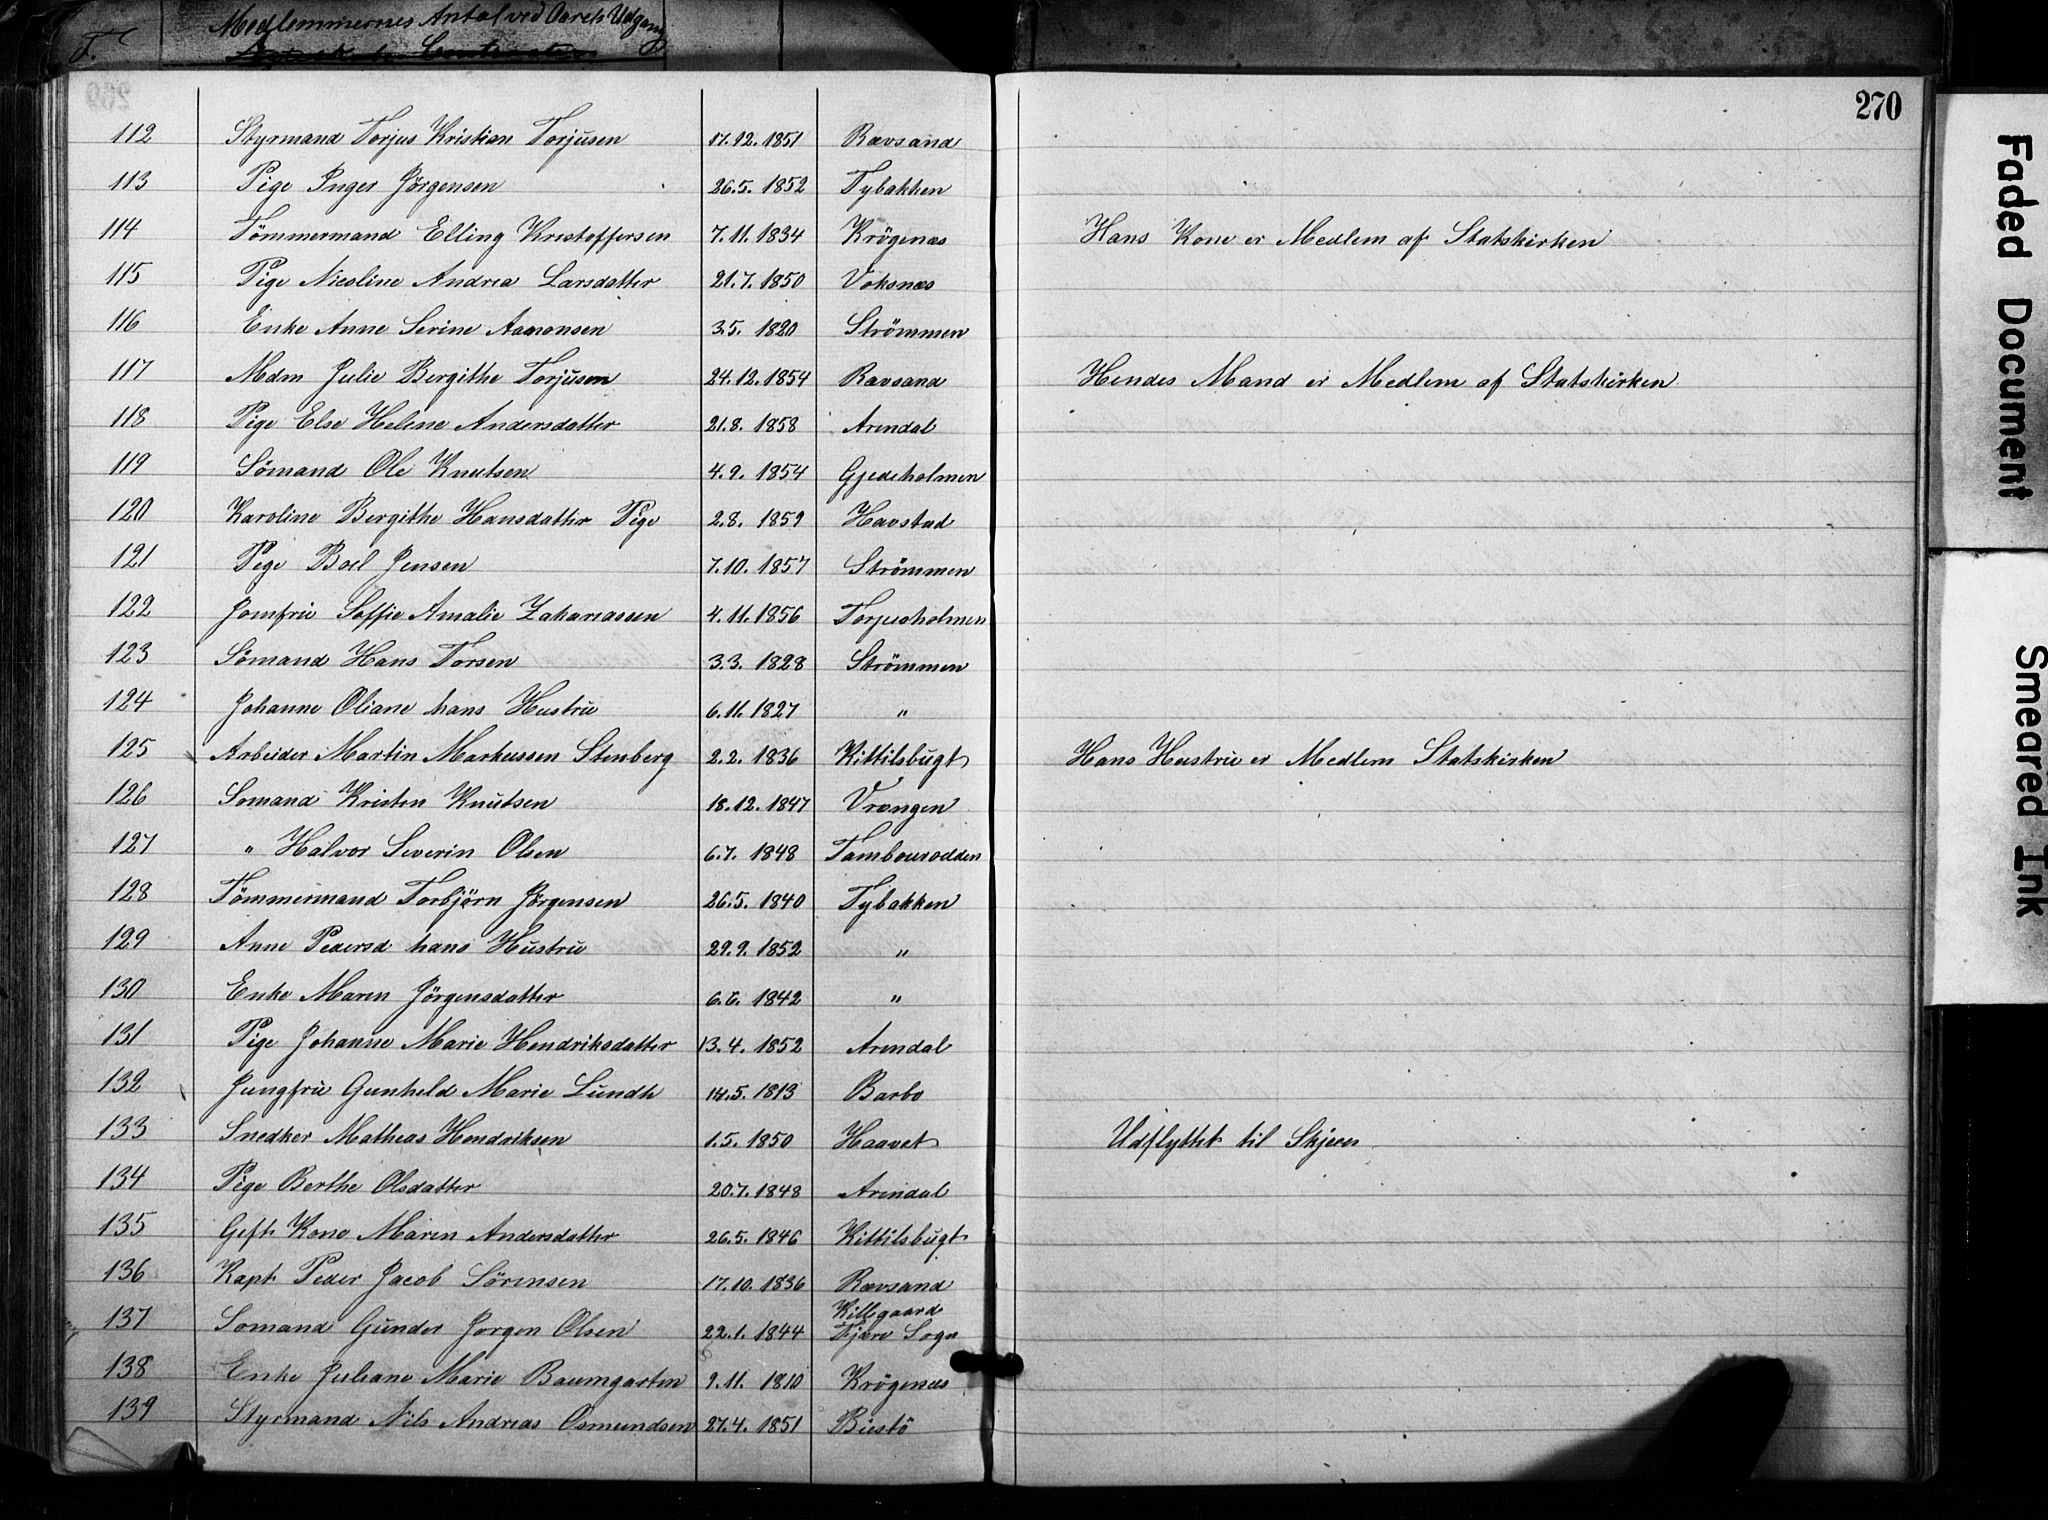 F.
Medlemmernes Antal ved Aarets Udgang
269
270
Faded Document
Smeared Ink
112 Styrmand Torjus Kristian Torjusen 17.12.1851 Ravsand
113 Pige Inger Jörgensen 26.5.1852 Tybakken
114 Tömmermand Elling Kristoffersen 7.11.1834 Krögenæs Hans Kone er Medlem af Statskirken
115 Pige Nicoline Andrea Larsdatter 21.7.1850 Voksnæs
116 Enke Anne Serine Aamonsen 3.5.1820 Strömmen
117 Mdm Julie Bergithe Torjusen 24.12.1854 Ravsand Hendes Mand er Medlem af Statskirken
118 Pige Else Helene Andersdatter 21.8.1858 Arendal
119 Sömand Ole Knutsen 4.9.1854 Gjedeholmen
120 Karoline Bergithe Hansdatter Pige 2.8.1859 Havstad
121 Pige Boel Jensen 7.10.1857 Strömmen
122 Jomfru Soffie Amalie Zakariassen 4.11.1856 Torjusholmen
123 Sömand Hans Torsen 3.3.1828 Strömmen
124 Johanne Oliane hans Hustru 6.11.1827 "
125 Arbeider Martin Markussen Stenberg 2.2.1836 Kittilsbugt Hans Hustru er Medlem Statskirken
126 Somand Kristen Knutsen 18.12.1847 Vrengen
127 " Halvor Severin Olsen 6.7.1848 Tambourodden
128 Tömmermand Torbjörn Jörgensen 26.5.1840 Tybakken
129 Anne Pedersd hans Hustru 29.9.1852 "
130 Enke Maren Jörgensdatter 6.6.1842 "
131 Pige Johanne Marie Hendriksdatter 13.4.1852 Arendal
132 Jungfru Gunheld Marie Lundh 14.5.1813 Barbo
133 Snedker Mathias Hendriksen 1.5.1850 Haavet Udflyttet til Skjeen
134 Pige Berthe Olsdatter 20.7.1848 Arendal
135 Gift Kone Maren Andersdatter 26.5.1846 Kittilsbugt
136 Kapt. Peder Jacob Sörensen 17.10.1836 Ravsand
Killegaard
137 Somand Gunder Jorgen Olsen 22.1.1844 Fjære Sogn
138 Enke Juliane Marie Baumgarten 9.11.1810 Krögenæs
139 Styrmand Nils Andreas Osmundsen 27.4.1851 Biestö